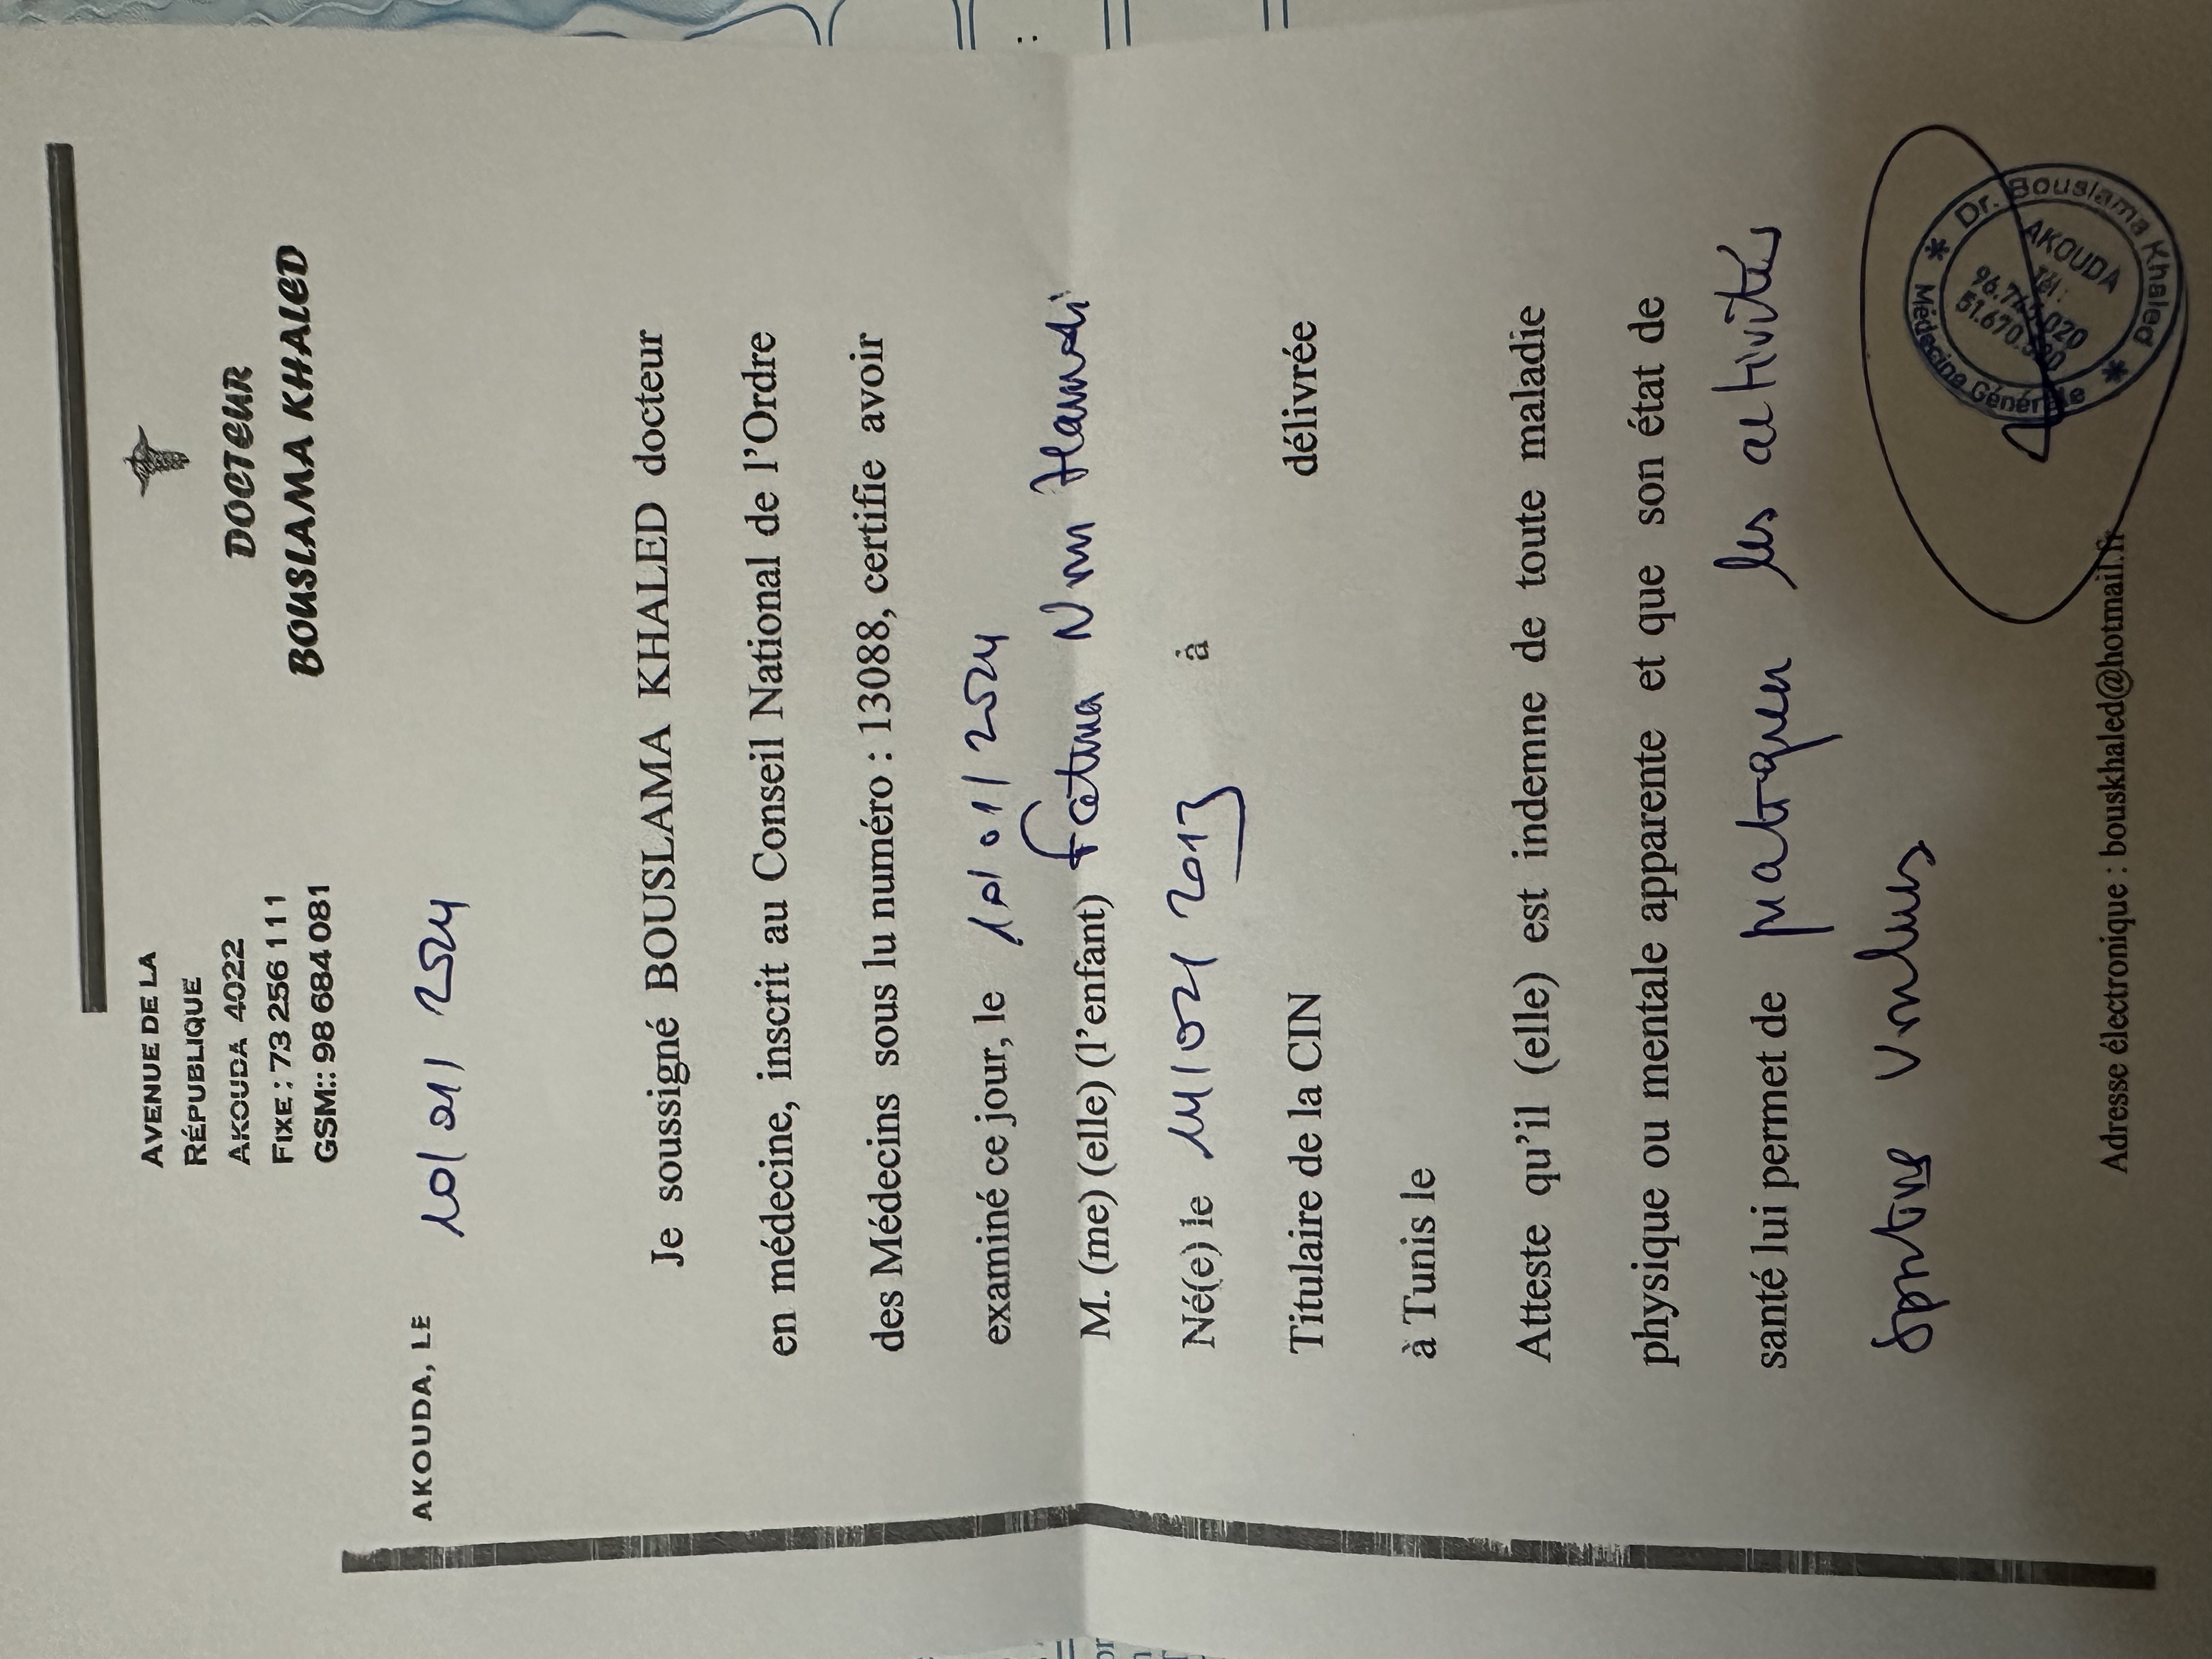 AVENUE DE LA
RÉPUBLIQUE
AKOUDA 4022
FIXE : 73 256 111
GSM:: 98 684 081
DOCTEUR
BOUSLAMA KHALED
AKOUDA, LE 10/01/2024
Je soussigné BOUSLAMA KHALED docteur
en médecine, inscrit au Conseil National de l'Ordre
des Médecins sous lu numéro : 13088, certifie avoir
examiné ce jour, le 10/01/2024
M. (me) (elle) (l'enfant) Fatma Nour Hamdi
Né(e) le 2013 à
Titulaire de la CIN délivrée
à Tunis le
Atteste qu'il (elle) est indemne de toute maladie
physique ou mentale apparente et que son état de
santé lui permet de pratiquer les activités
sportives voulues
Dr. Bouslama Khaled
Médecine Générale
AKOUDA
Tél :
Adresse électronique : bouskhaled@hotmail.fr